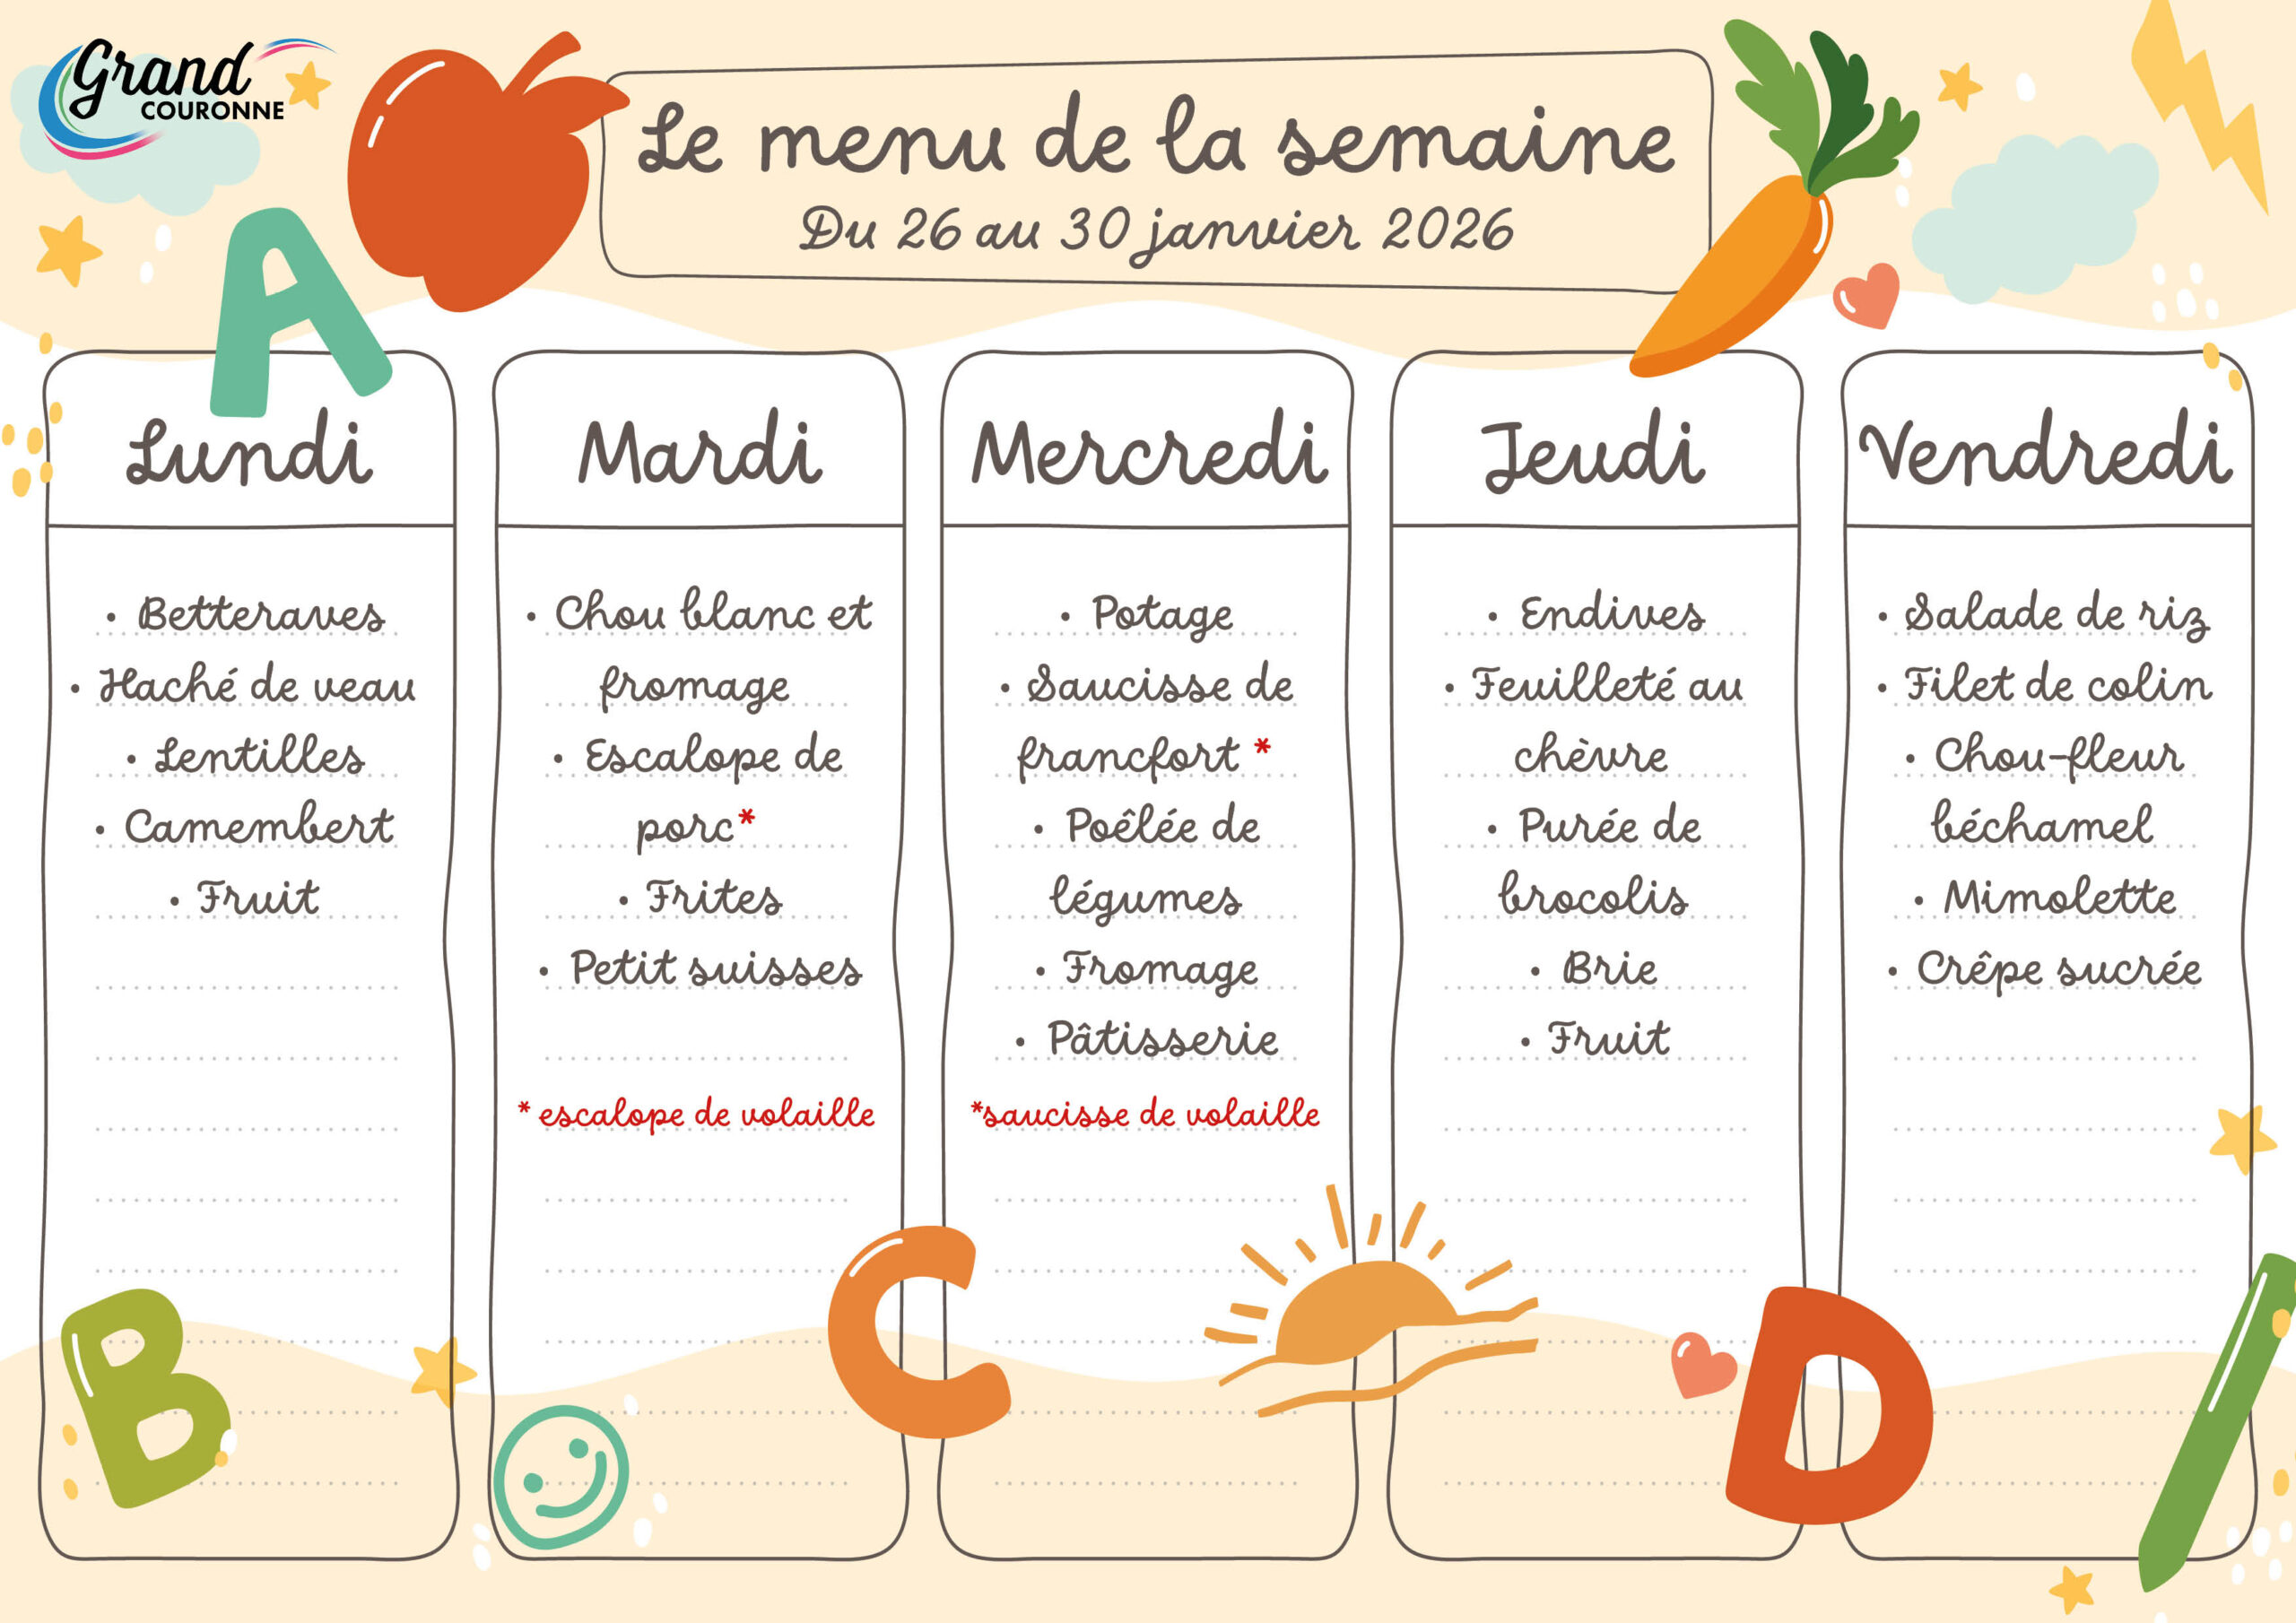 Grand
COURONNE
Le menu de la semaine
Du 26 au 30 janvier 2026
A
Lundi
• Betteraves
• Haché de veau
• Lentilles
• Camembert
• Fruit
Mardi
• Chou blanc et
fromage
• Escalope de
porc*
• Frites
• Petit suisses
* escalope de volaille
Mercredi
• Potage
• Saucisse de
francfort *
• Poêlée de
légumes
• Fromage
• Pâtisserie
*saucisse de volaille
Jeudi
• Endives
• Feuilleté au
chèvre
• Purée de
brocolis
• Brie
• Fruit
Vendredi
• Salade de riz
• Filet de colin
• Chou-fleur
béchamel
• Mimolette
• Crêpe sucrée
B
C
D